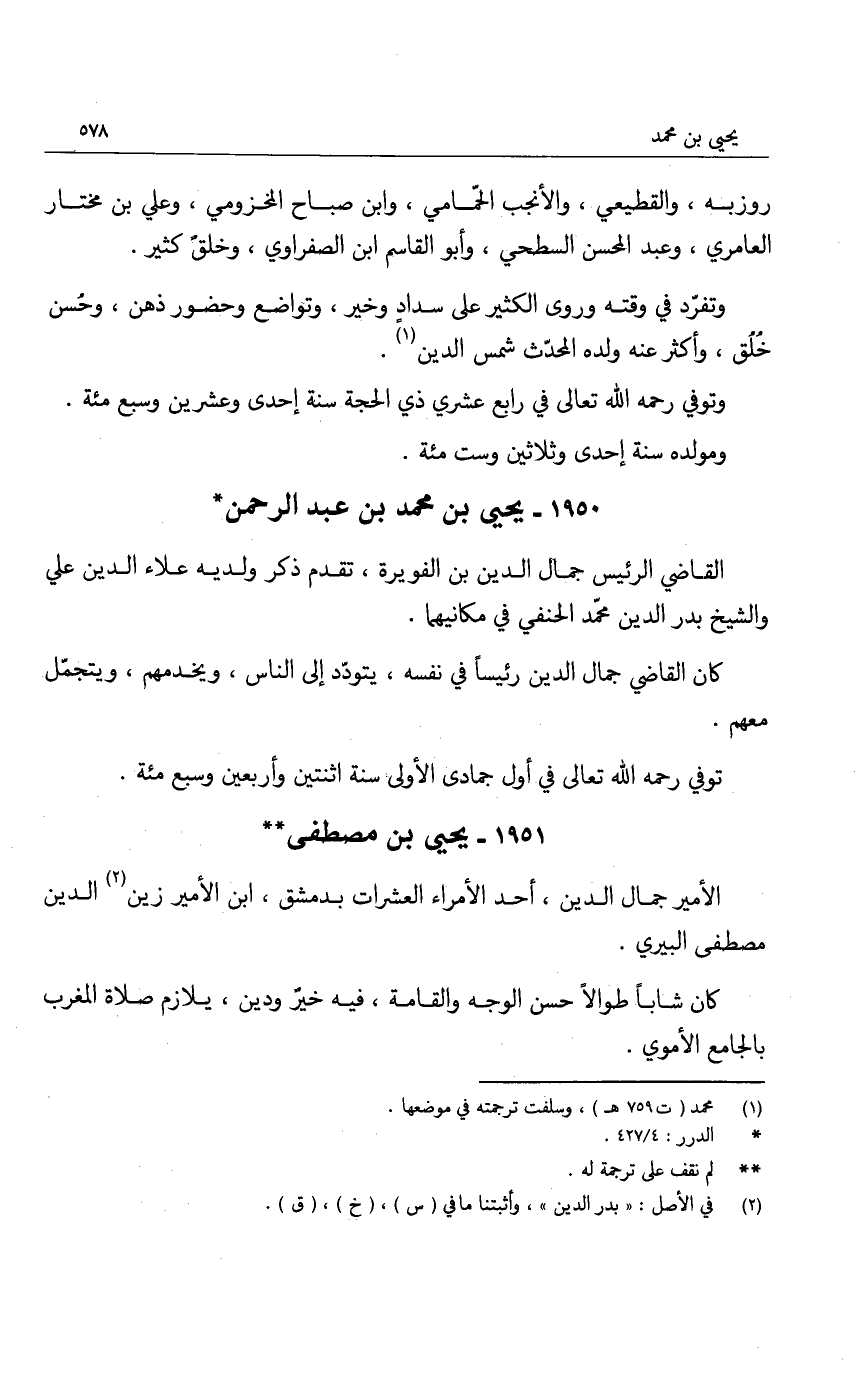 يحيى بن محمد ٥٧٨
روزبـه ، والقطيعي ، والأنجب الحمّـامي ، وابن صبـاح المخـزومي ، وعلي بن مختـار
العامري ، وعبد المحسن السطحي ، وأبو القاسم ابن الصفراوي ، وخلقٌ كثير .
وتفرّد في وقتـه وروى الكثير على سـدادٍ وخير ، وتواضـع وحضـور ذهن ، وحُسن
خُلُق ، وأكثر عنه ولده المحدّث شمس الدين(١) .
وتوفي رحمه الله تعالى في رابع عشري ذي الحجة سنة إحدى وعشرين وسبع مئة .
ومولده سنة إحدى وثلاثين وست مئة .
١٩٥٠ ـ يحيى بن محمد بن عبد الرحمن*
القـاضي الرئيس جمـال الـدين بن الفويرة ، تقـدم ذكر ولـديـه عـلاء الـدين علي
والشيخ بدر الدين محمّد الحنفي في مكانيهما .
كان القاضي جمال الدين رئيساً في نفسه ، يتودّد إلى الناس ، ويخـدمهم ، ويتجمّل
معهم .
توفي رحمه الله تعالى في أول جمادى الأولى سنة اثنتين وأربعين وسبع مئة .
١٩٥١ ـ يحيى بن مصطفى**
الأمير جمـال الـدين ، أحـد الأمراء العشرات بـدمشق ، ابن الأمير زين(٢) الـدين
مصطفى البيري .
كان شـابـاً طوالاً حسن الوجـه والقـامـة ، فيـه خيرٌ ودين ، يـلازم صـلاة المغرب
بالجامع الأموي .
(١) محمد ( ت ٧٥٩ هـ ) ، وسلفت ترجمته في موضعها .
* الدرر : ٤٢٧/٤ .
** لم نقف على ترجمة له .
(٢) في الأصل : « بدر الدين » ، وأثبتنا مافي ( س ) ، ( خ ) ، ( ق ) .